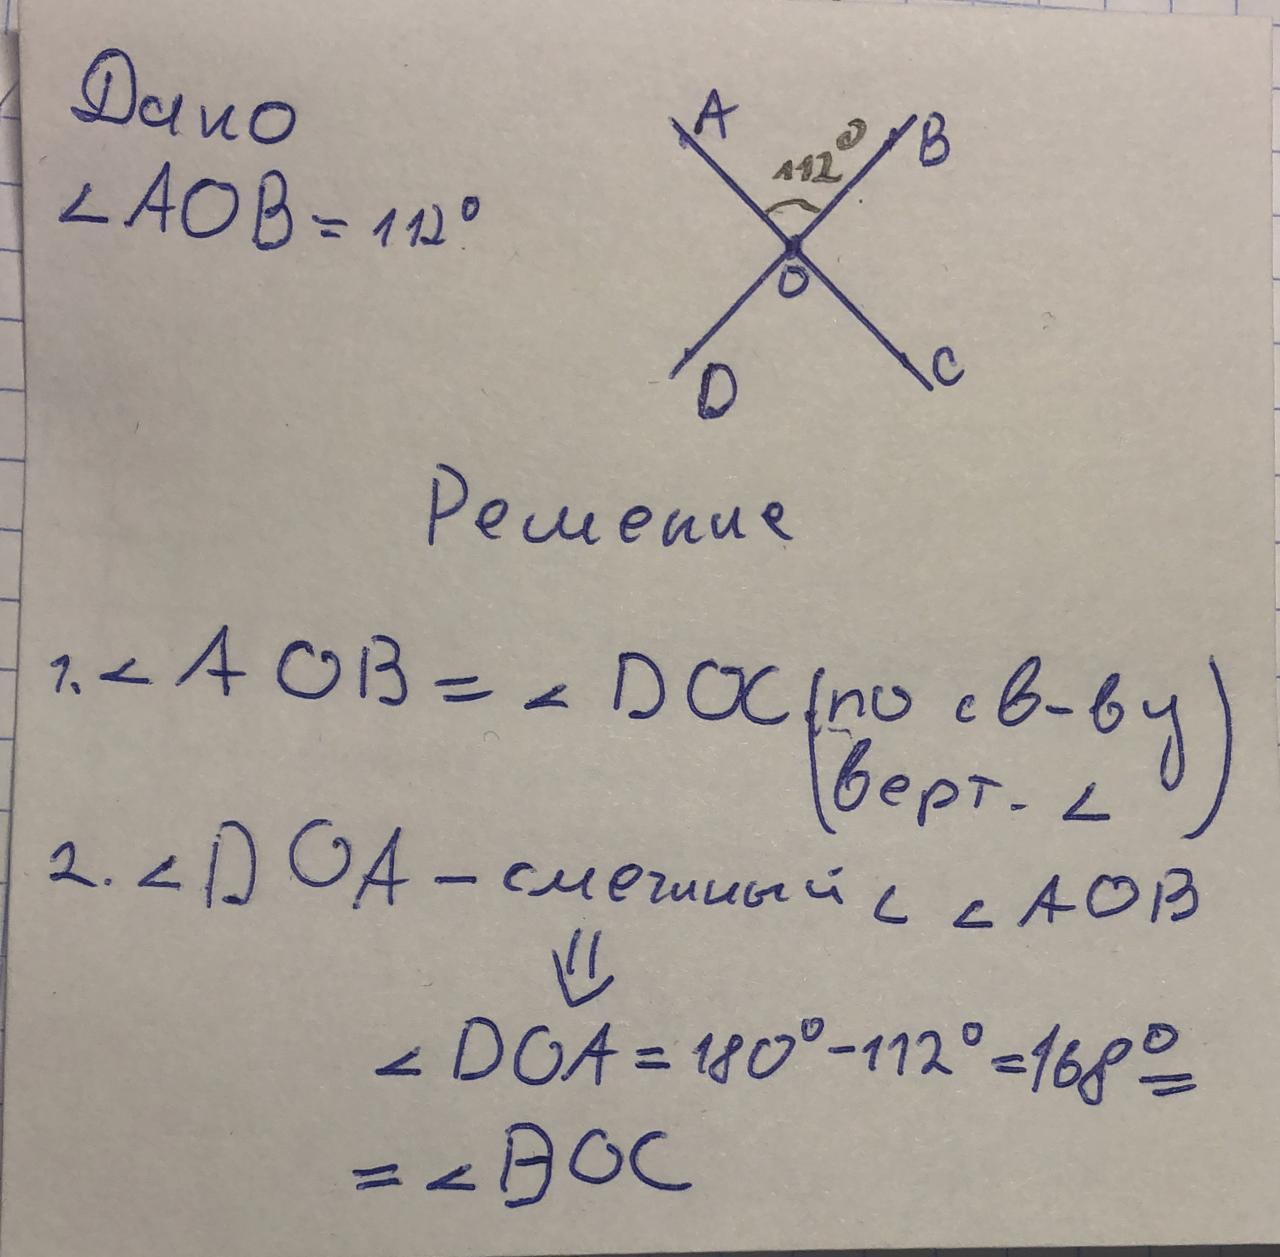 Дано
∠AOB = 112°
A
B
112°
O
D
C
Решение
1. ∠AOB = ∠DOC (по св-ву
верт. ∠)
2. ∠DOA - смежный с ∠AOB
⇓
∠DOA = 180° - 112° = 168° =
= ∠BOC